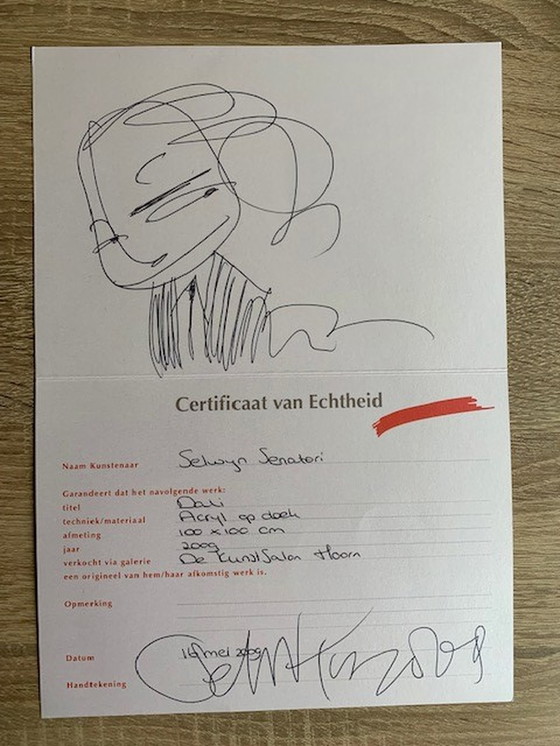 Certificaat van Echtheid
Naam Kunstenaar Selwyn Senatori
Garandeert dat het navolgende werk:
titel Dali
techniek/materiaal Acryl op doek
afmeting 100 x 100 cm
jaar 2009
verkocht via galerie De KunstSalon Hoorn
een origineel van hem/haar afkomstig werk is.
Opmerking
Datum 16 mei 2009
Handtekening